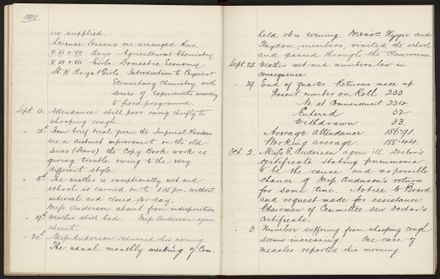 1899.
are supplied.
Science Lessons are arranged thus.
V. VI & VII Boys Agricultural Chemistry
V. VI & VII Girls Domestic Economy
St. IV Boys & Girls. Introduction to Physics &
Elementary Chemistry with
series of Experiments according
to fixed programme.
Sept 12. Attendance still poor owing chiefly to
whooping cough.
15th From long trial given the Imperial Readers
are a distinct improvement on the old
series (Ours). The Copy Book work is
giving trouble owing to the very
different style.
18th The weather is exceptionally wet and
school is carried on to 1.45 p.m. without
interval and closed for day.
Miss Anderson absent from indisposition
19th Weather still bad. Miss Anderson again
absent.
20th Miss Anderson returned this morning
The usual monthly meeting of Com.
held this evening. Messrs
Heydon, members, visited the school
and passed through the classrooms.
Sept 25. Weather wet and numbers low in
consequence.
29. End of quarter Returns made up
Present number on Roll 233
No at Commencement 234
Entered 32
Withdrawn 33
Average Attendance 186.71
Working average 188.44.
Oct. 2. Miss E. Anderson again ill. Doctor's
certificate stating pneumonia
to be the cause and no possible
chance of Miss Anderson's return
for some time. Notice to Board
and request made for assistance.
Chairman of Committee saw Doctor's
Certificate.
3. Number suffering from whooping cough
seems increasing. One case of
measles reported this morning.